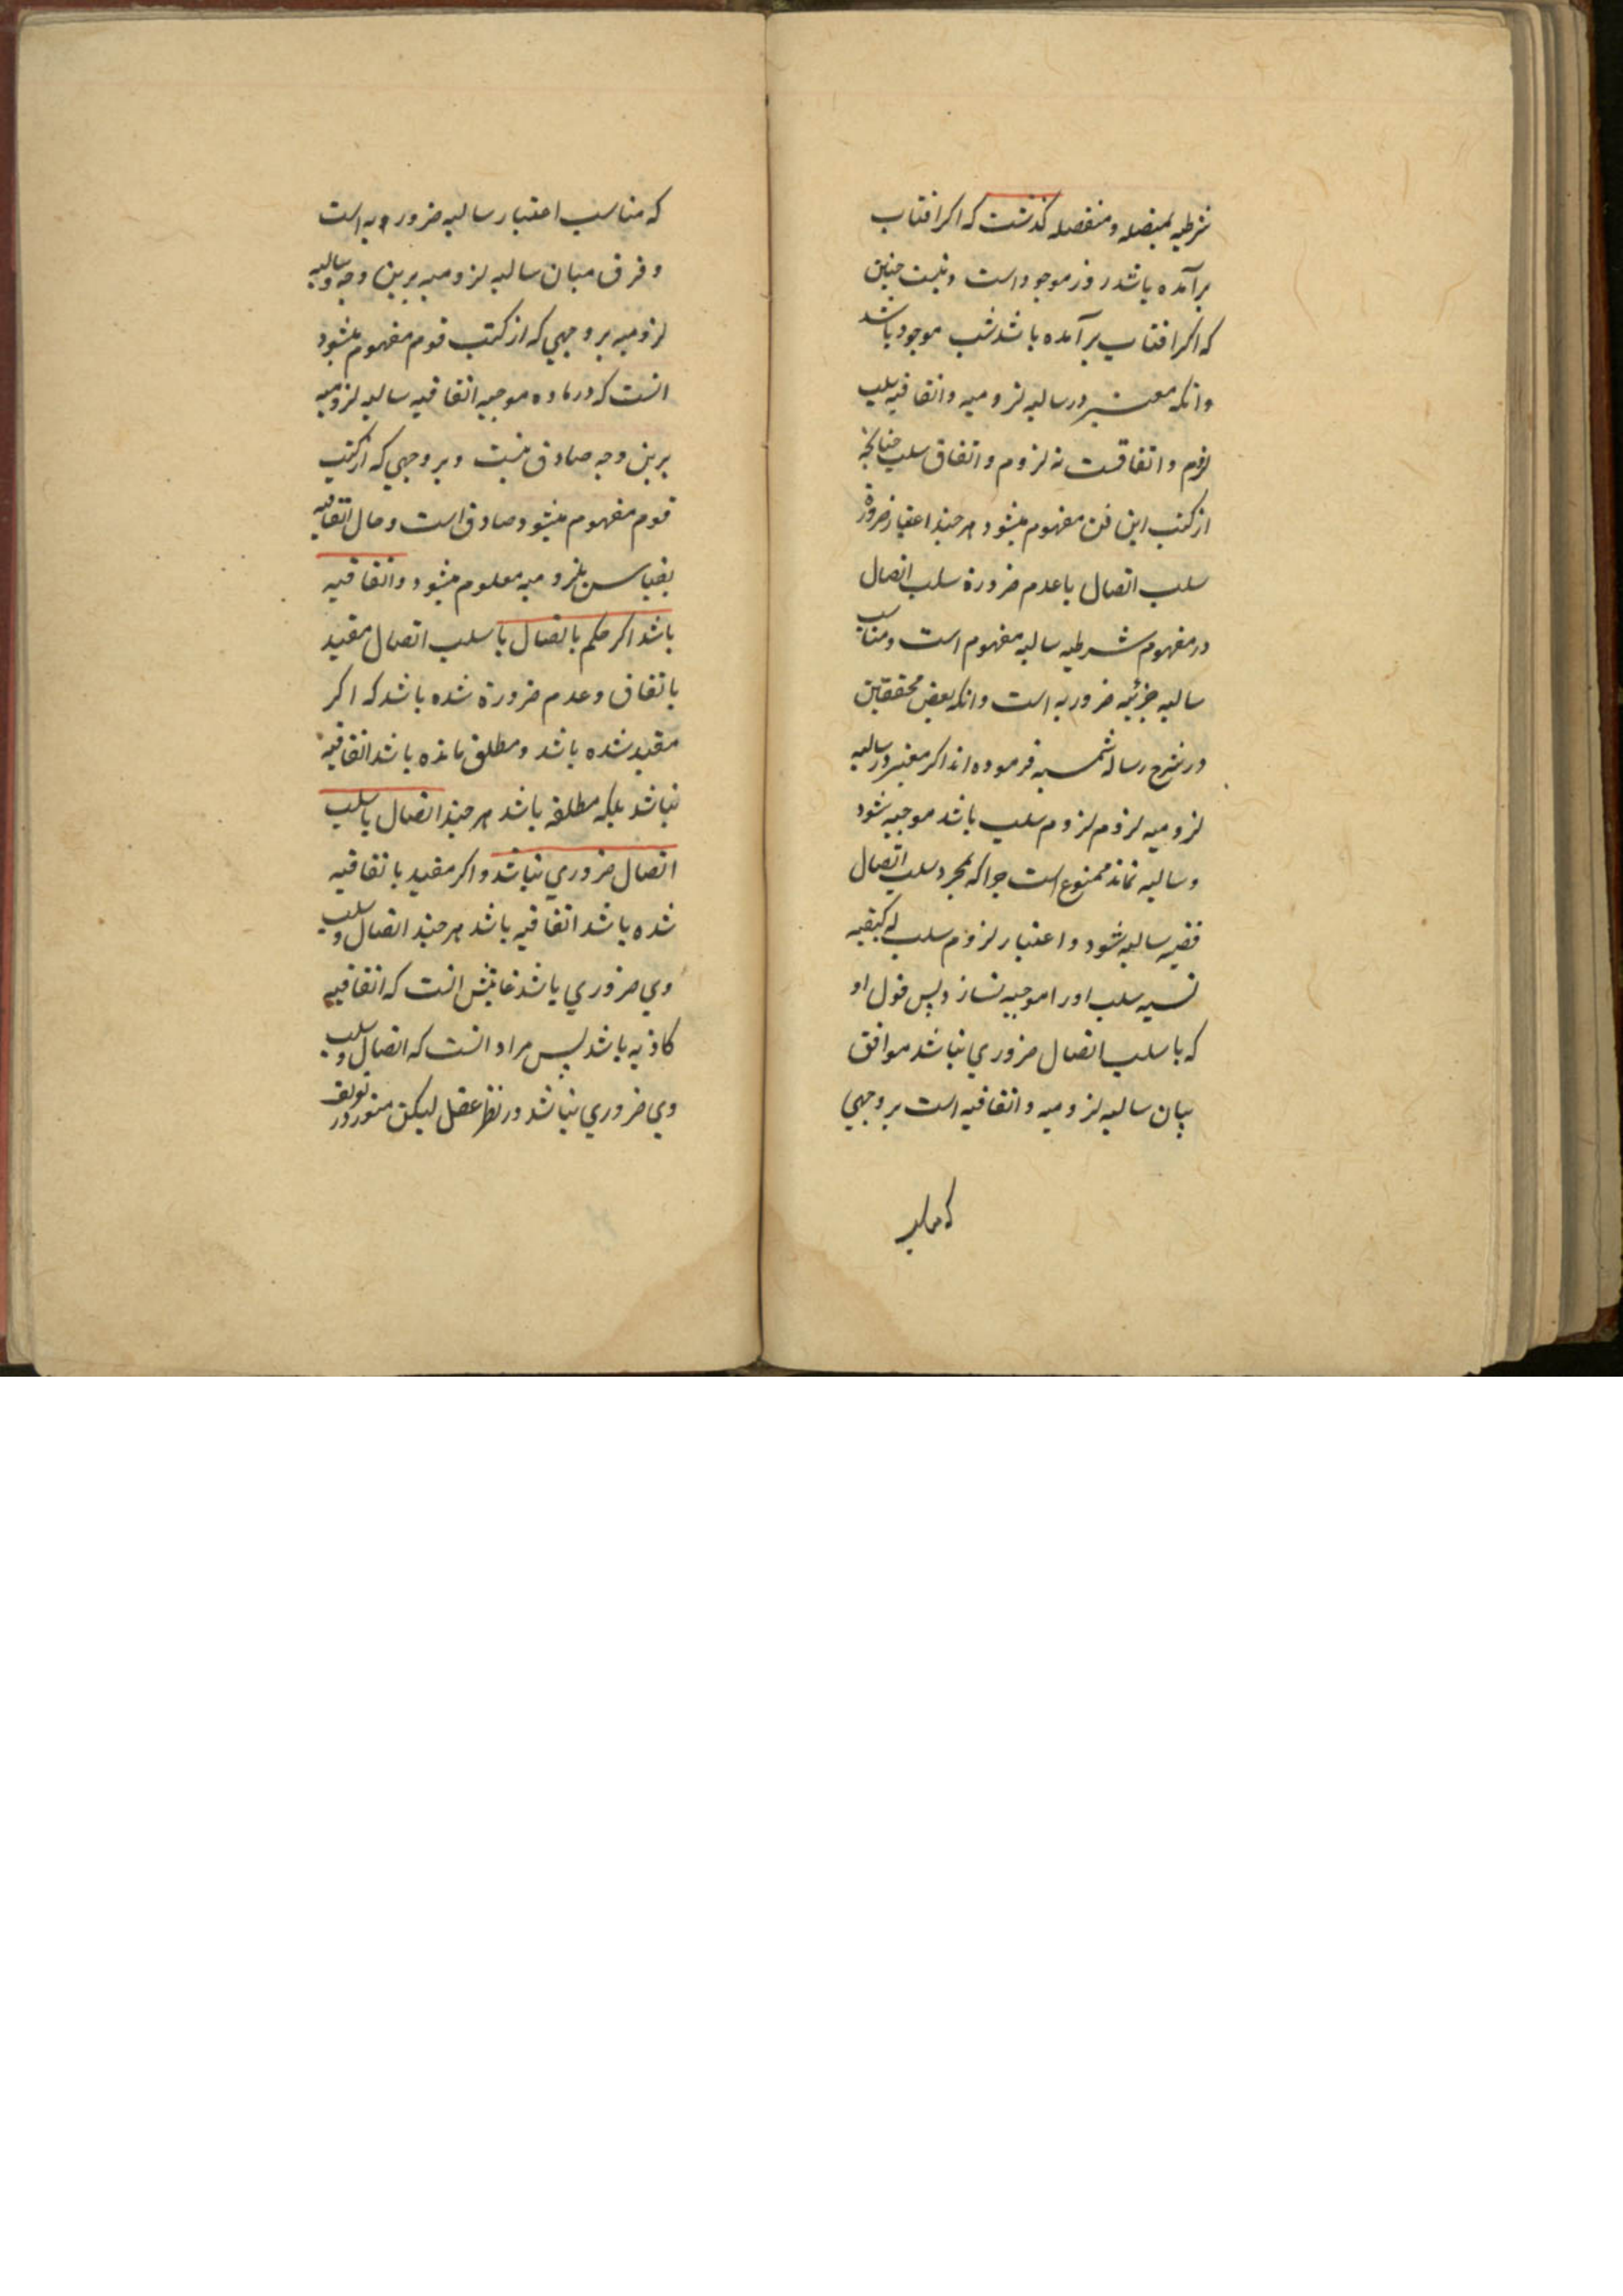 شرطیه بمتصله و منفصله کذشت که اکر افتاب
برآمده باشد روز موجود است و نیست چنین
که اکر افتاب برآمده باشد شب موجود باشد
وانکه معتبر در سالبه لزومیه و اتفاقیه سلب
لزوم و اتفاقست نه لزوم و اتفاق سلب چنانکه
از کتب این فن مفهوم میشود هر چند اعتبار ضرورة
سلب اتصال یا عدم ضرورة سلب اتصال
در مفهوم شرطیه سالبه مفهوم است و مناسب
سالبه جزئیه ضروریه است وانکه بعض محققین
در شرح رساله شمسیه فرموده اند اکر معتبر در سالبه
لزومیه لزوم سلب باشد موجبه شود
و سالبه نماند ممنوع است چرا که بمجرد سلب اتصال
قضیه سالبه شود و اعتبار لزوم سلب که کیفیه
نسبه سلب او را موجبه نسازد پس قول او
که با سلب اتصال ضروری نباشد موافق
بیان سالبه لزومیه و اتفاقیه است بر وجهی
که مناسب
که مناسب اعتبار سالبه ضروریه است
و فرق میان سالبه لزومیه برین وجه و سالبه
لزومیه بر وجهی که از کتب قوم مفهوم میشود
انست که در ماده موجبه اتفاقیه سالبه لزومیه
برین وجه صادق نیست و بر وجهی که از کتب
قوم مفهوم میشود صادق است و حال اتفاقیه
بقیاس لزومیه معلوم میشود و اتفاقیه
باشد اکر حکم باتصال یا سلب اتصال مقید
باتفاق و عدم ضرورة شده باشد که اکر
مقید نشده باشد و مطلق مانده باشد اتفاقیه
نباشد بلکه مطلقه باشد هر چند اتصال یا سلب
اتصال ضروری نباشد و اکر مقید باتفاقیه
شده باشد اتفاقیه باشد هر چند اتصال و سلب
وی ضروری باشد غایتش انست که اتفاقیه
کاذبه باشد پس مراد انست که اتصال و سلب
وی ضروری نباشد در نظر عقل لیکن در تعریف